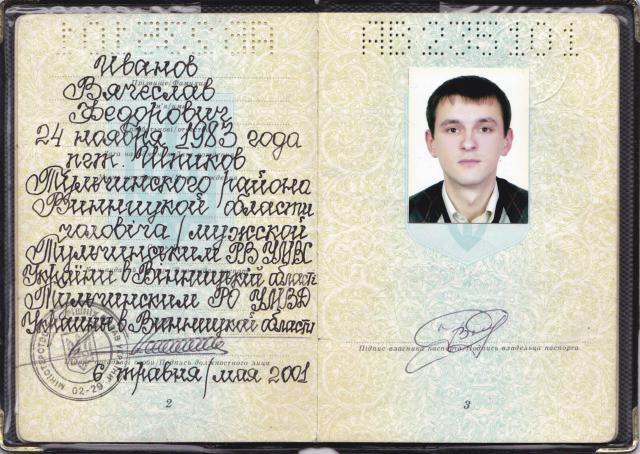 АВ 235101
Иванов
Прізвище/Фамилия
Вячеслав
Федорович
24 ноября 1983 года
пгт. Шпиков
Тульчинского района
Винницкой области
чоловіча / мужской
Тульчинським РВ УМВС
України в Винницкій области
Тульчинским РО УМВД
Украины в Винницкой области
02-29
особи/Подпись должностного лица
6 травня/мая 2001
2
Підпис власника паспорта/Подпись владельца паспорта
3